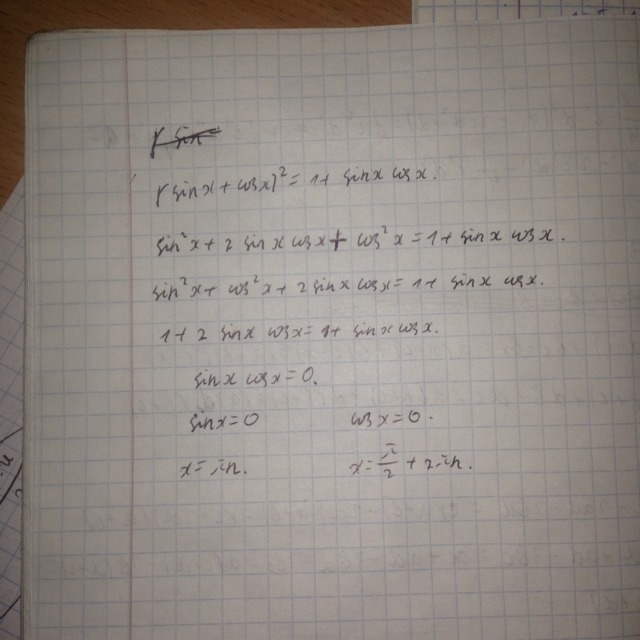 (sin x + cos x)² = 1 + sin x cos x.
sin²x + 2 sin x cos x + cos²x = 1 + sin x cos x.
sin²x + cos²x + 2 sin x cos x = 1 + sin x cos x.
1 + 2 sin x cos x = 1 + sin x cos x.
sin x cos x = 0.
sin x = 0 cos x = 0.
x = πn. x = π/2 + 2πn.